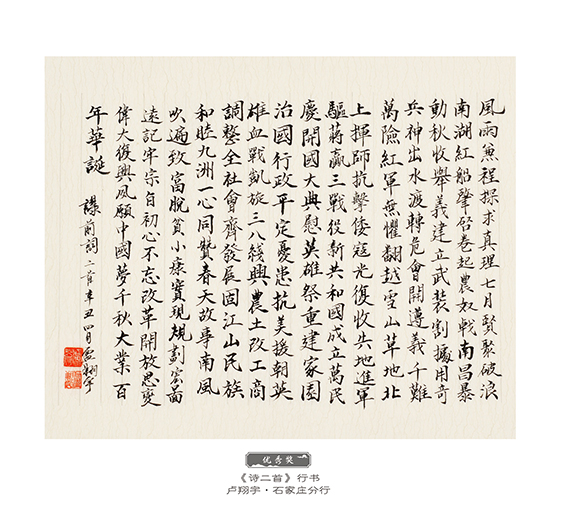 風雨兼程探求真理七月賢聚破浪
南湖紅船肇啓卷起農奴戟南昌暴
動秋收舉義建立武裝割據用奇
兵神出水渡轉危會開遵義千難
萬險紅軍無懼翻越雪山草地北
上揮師抗擊倭寇光復收失地進軍
驅蔣贏三戰役新共和國成立萬民
慶開國大典慰英雄祭重建家園
治國行政平定憂患抗美援朝英
雄血戰凱旋三八綫興農土改工商
調整全社會齊發展固江山民族
和睦九洲一心同贊春天故事南風
吹遍致富脫貧小康實現規劃
遠記牢宗自初心不忘改革開放思變
偉大復興夙願中國夢千秋大業百
年華誕 謙前詞二首辛丑四月盧翔宇
优秀奖
《诗二首》行书
卢翔宇·石家庄分行